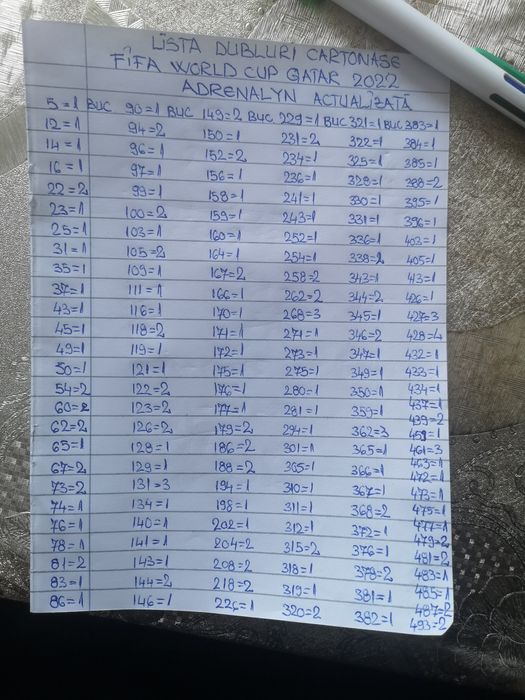 LISTA DUBLURI CARTONASE
FIFA WORLD CUP QATAR 2022
ADRENALYN ACTUALIZATĂ
5=1 BUC 90=1 BUC 149=2 BUC 229=1 BUC 321=1 BUC 383=1
12=1 94=2 150=1 231=2 322=1 384=1
14=1 96=1 152=2 234=1 325=1 385=1
16=1 97=1 156=1 236=1 328=1 388=2
22=2 99=1 158=1 241=1 330=1 395=1
23=1 100=2 159=1 243=1 331=1 396=1
25=1 103=1 160=1 252=1 336=1 403=1
31=1 105=2 164=1 254=1 338=2 405=1
35=1 109=1 167=2 258=2 343=1 413=1
37=1 111=1 166=1 262=2 344=2 426=1
43=1 116=1 170=1 268=3 345=1 427=3
45=1 118=2 171=1 271=1 346=2 428=4
49=1 119=1 172=1 273=1 347=1 432=1
50=1 121=1 175=1 275=1 349=1 433=1
54=2 122=2 176=1 280=1 350=1 434=1
60=2 123=2 177=1 281=1 359=1 437=1
62=2 126=2 179=2 294=1 362=3 439=2
65=1 128=1 186=2 301=1 365=1 459=1
67=2 129=1 188=2 305=1 366=1 461=3
73=2 131=3 194=1 310=1 367=1 463=1
74=1 134=1 198=1 311=1 368=2 472=1
76=1 140=1 202=1 312=1 372=1 473=1
78=1 141=1 204=2 315=2 376=1 475=1
81=2 143=1 208=2 318=1 378=2 477=1
83=1 144=2 218=2 319=1 381=1 479=2
86=1 146=1 226=1 320=2 382=1 481=2
483=1
485=1
487=2
493=2